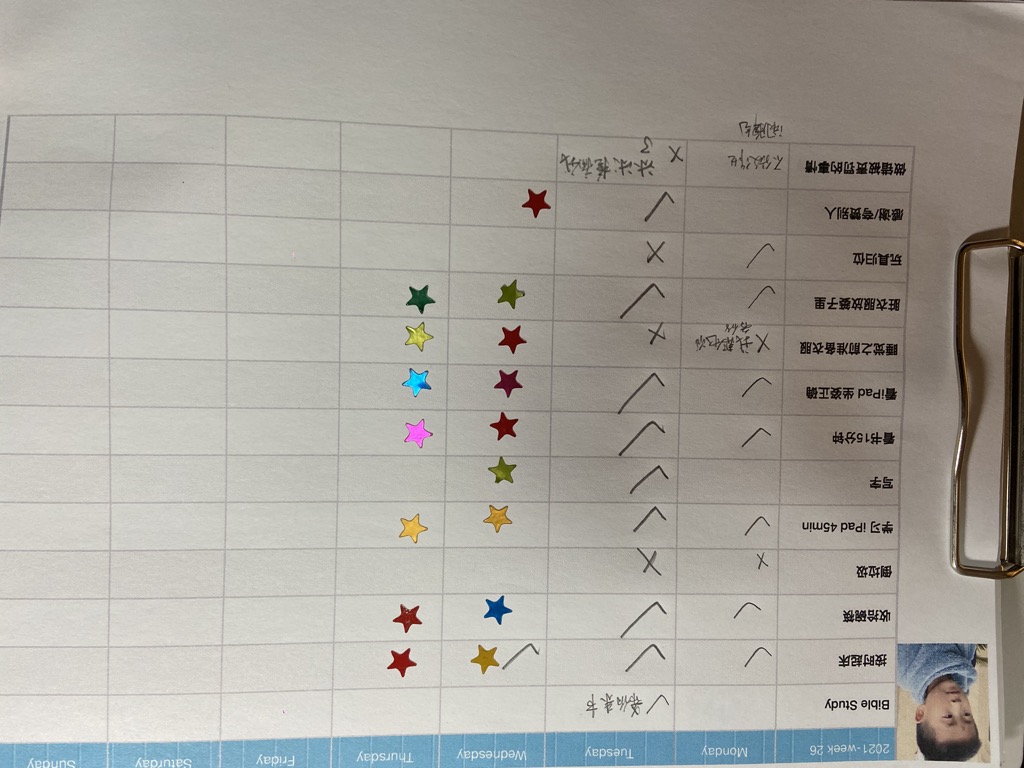 2021-week 26 Monday Tuesday Wednesday Thursday Friday Saturday Sunday
Bible Study ✓希伯来书
按时起床 ✓ ✓ ✓
收拾碗筷 ✓ ✓
倒垃圾 x x
学习 iPad 45min ✓ ✓
写字 ✓
看书15分钟 ✓ ✓
看iPad 坐姿正确 ✓ ✓
睡觉之前准备衣服 x 我帮他准 x
备的
脏衣服放篓子里 ✓ ✓
玩具归位 ✓ x
感谢/夸赞别人 ✓
做错被责罚的事情 不做作业 x 冰冰 痛我
了
闹脾气